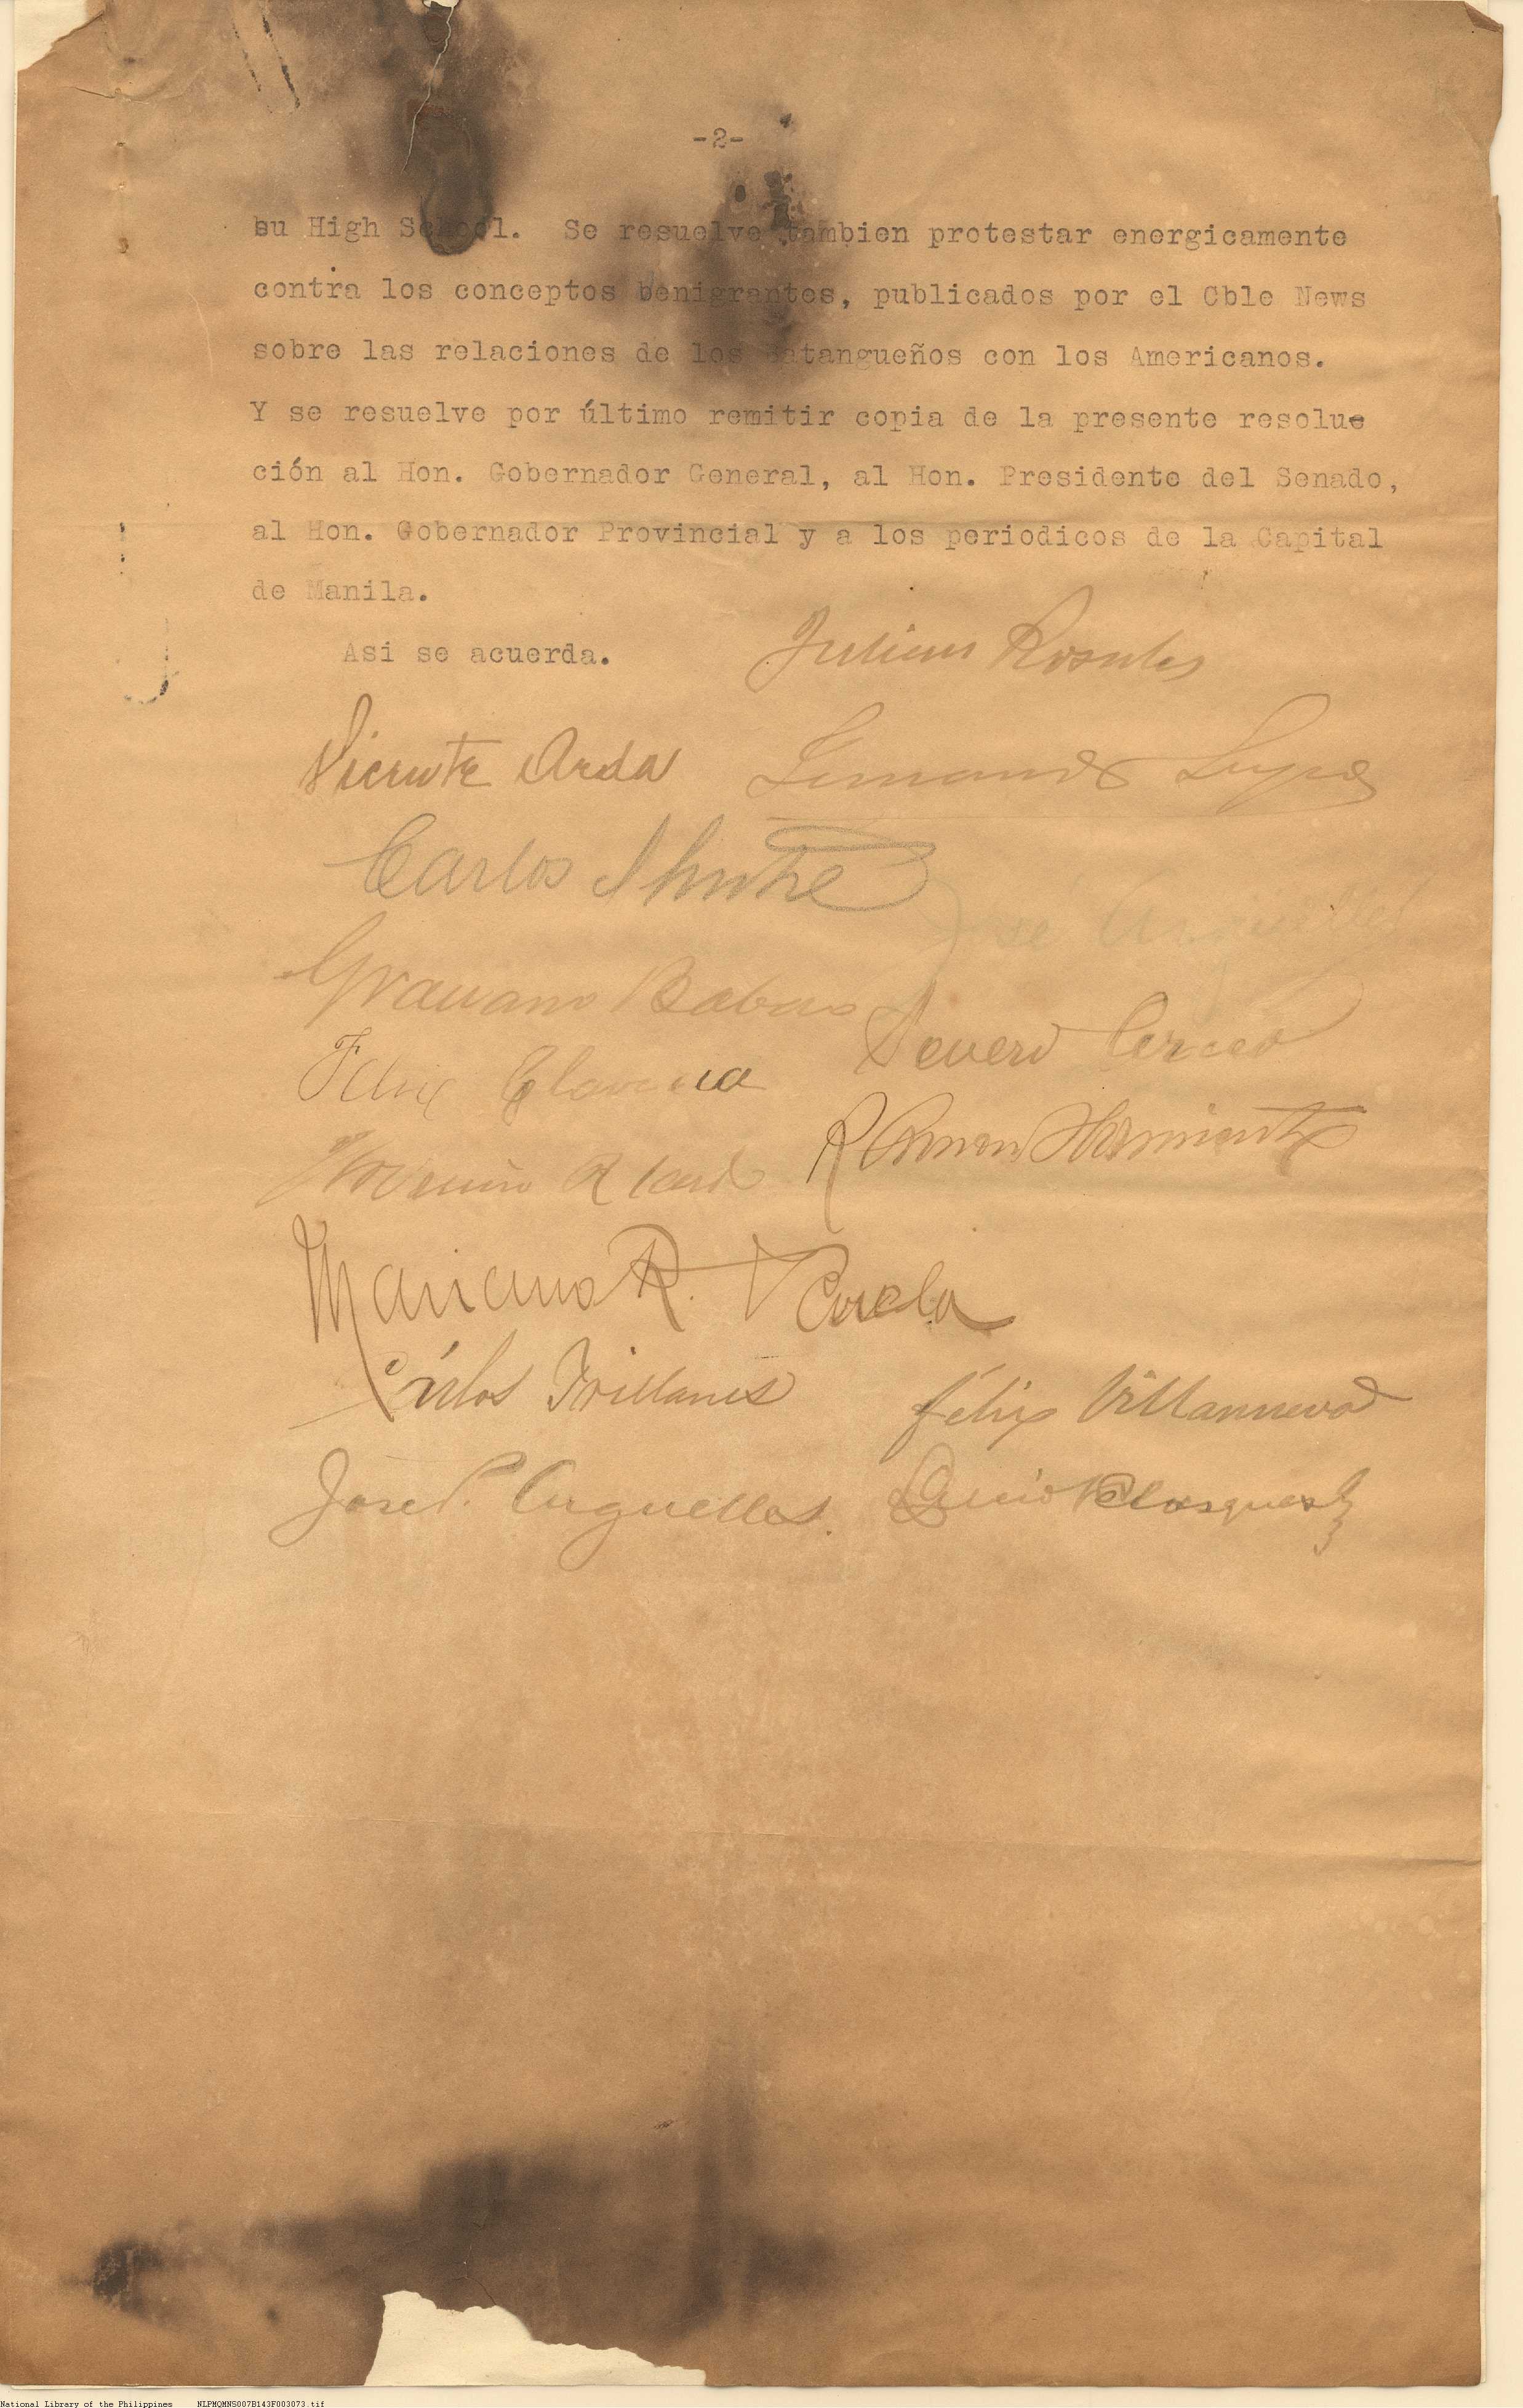 -2-
su High School. Se resuelve tambien protestar energicamente
contra los conceptos benigrantes, publicados por el Cble News
sobre las relaciones de los Batangueños con los Americanos.
Y se resuelve por último remitir copia de la presente resolue
ción al Hon. Gobernador General, al Hon. Presidente del Senado,
al Hon. Gobernador Provincial y a los periodicos de la Capital
de Manila.
Asi se acuerda.
Julian Rosales
Vicente Arda
Carlos
José Arguelles
Graciano Babao
Severo
Felix
Ramon Sarmiento
Mariano R. Varela
Cárlos Trillanes
Félix Villanueva
Jose P. Arguelles.
Lucio Velasquez
National Library of the Philippines NLPMQMNS007B143F003073.tif